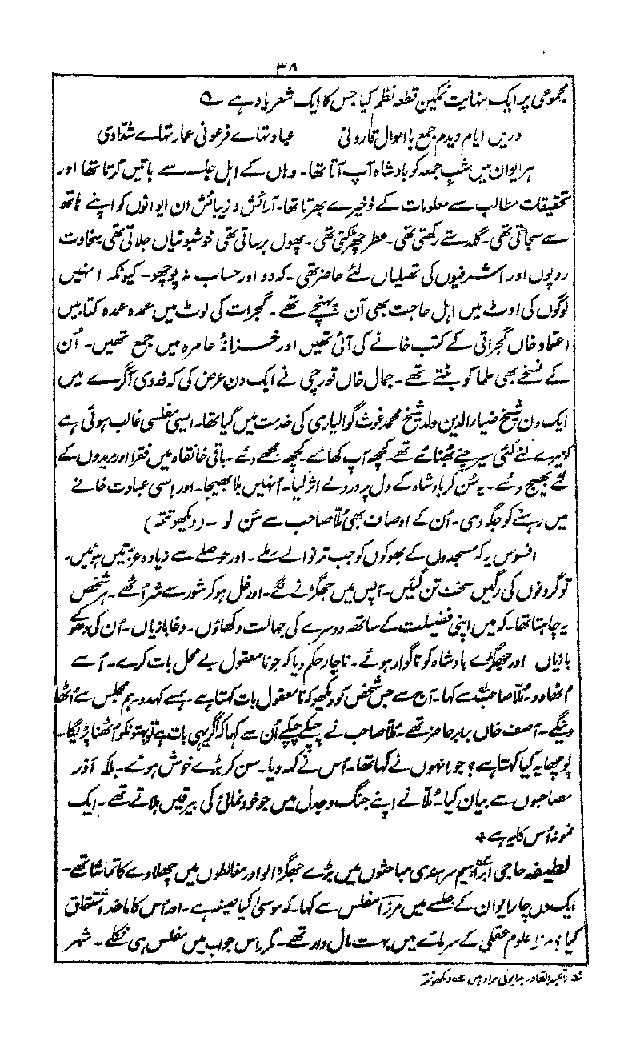 ۳۸
مجموعی پر ایک نہایت نمکین قطعہ نظر کیا جس کا ایک شعر یاد ہے ؎
دریں ایام دیدم جمع با اموال قارونی عبادتہاے فرعونی عمارتہاے شدّادی
ہر ایوان میں شب جمعہ کو بادشاہ آپ آتا تھا۔ وہاں کے اہل جلسہ سے باتیں کرتا تھا اور
تحقیقات مطالب سے معلومات کے ذخیرے بھرتا تھا۔ آرائش و زیبائش ان ایوانوں کو اپنے ہاتھ
سے سجاتی تھی۔ گلدستے رکھتی تھی۔ عطر چھڑکتی تھی۔ پھول برساتی تھی خوشبوئیاں جلاتی تھی سخاوت
روپوں اور اشرفیوں کی تھیلیاں لئے حاضر تھی۔ کہ دو اور حساب نہ پوچھو۔ کیونکہ انہیں
لوگوں کی اوٹ میں اہل حاجت بھی آن پہنچے تھے۔ گجرات کی لوٹ میں عمدہ عمدہ کتابیں
اعتماد خاں گجراتی کے کتب خانے کی آئی تھیں اور خزانۂ عامرہ میں جمع تھیں۔ اُن
کے نسخے بھی علما کو بٹتے تھے۔ جمال خاں قورچی نے ایک دن عرض کی کہ فدوی آگرے میں
ایک دن شیخ ضیاء الدین ولد شیخ محمد غوث گوالیاری کی خدمت میں گیا تھا۔ ایسی مفلسی غالب ہوئی ہے
کہ میرے لئے کئی سیر چنے بھنائے تھے۔ کچھ آپ کھائے۔ کچھ مجھے دئے۔ باقی خانقاہ میں فقرا اور مریدوں کے
لئے بھیج دئے۔ یہ سُن کر بادشاہ کے دل پر درد نے اثر کیا۔ اُنہیں بُلا بھیجا۔ اور اِسی عبادت خانے
میں رہنے کو جگہ دی۔ اُن کے اوصاف بھی مُلّا صاحب سے سُن لو۔ (دیکھو تتمہ)
افسوس یہ کہ مسجدوں کے بھوکوں کو جب تر نوالے ملے۔ اور حوصلے سے زیادہ عزتیں ہوئیں۔
تو گردنوں کی رگیں سخت تن گئیں۔ آپس میں جھگڑنے لگے۔ اور غل ہو کر شور سے شر اُٹھے۔ ہر شخص
یہ چاہتا تھا۔ کہ میں اپنی فضیلت کے ساتھ دوسرے کی جہالت دکھاؤں۔ دغا بازیاں۔ اُن کی دھوکے
بازیاں اور جھگڑے بادشاہ کو ناگوار ہوئے۔ ناچار حکم دیا کہ جو نامعقول بے محل بات کرے۔ اُسے
اُٹھا دو۔ مُلّا صاحب سے کہا۔ آج سے جس شخص کو دیکھو کہ نامعقول بات کہتا ہے۔ ہم سے کہدو۔ ہم مجلس سے اُٹھا
دینگے۔ آصف خاں برابر حاضر تھے۔ مُلّا صاحب نے چپکے چپکے اُن سے کہا کہ اگر یہی بات ہے تو بہتوں کو اُٹھنا پڑیگا۔
پوچھا یہ کیا کہتا ہے؟ جو اُنہوں نے کہا تھا۔ اُس نے کہ دیا۔ سن کر بڑے خوش ہوئے۔ بلکہ اَور
مصاحبوں سے بیان کیا۔ مُلّا نے اپنے جنگ و جدل میں جو خود نمائی کی بیرقیں ہلاتے تھے۔ ایک
نمونہ اُس کا یہ ہے ؞
لطیفہ۔ حاجی ابراہیم سرہندی مباحثوں میں بڑے جھگڑالو اور مغالطوں میں چھلاوے کا تماشا تھے۔
ایک دن چار ایوان کے جلسے میں مرزا مفلس سے کہا کہ موسیٰ کیا صیغہ ہے۔ اور اُس کا ماخذ اشتقاق
کیا؟ مرزا علوم عقلی کے سرمائے میں بہت مال دار تھے۔ مگر اس جواب میں مفلس ہی نکلے۔ شہر
ملّا عبدالقادر بدایونی مراد ہیں دیکھو تتمہ